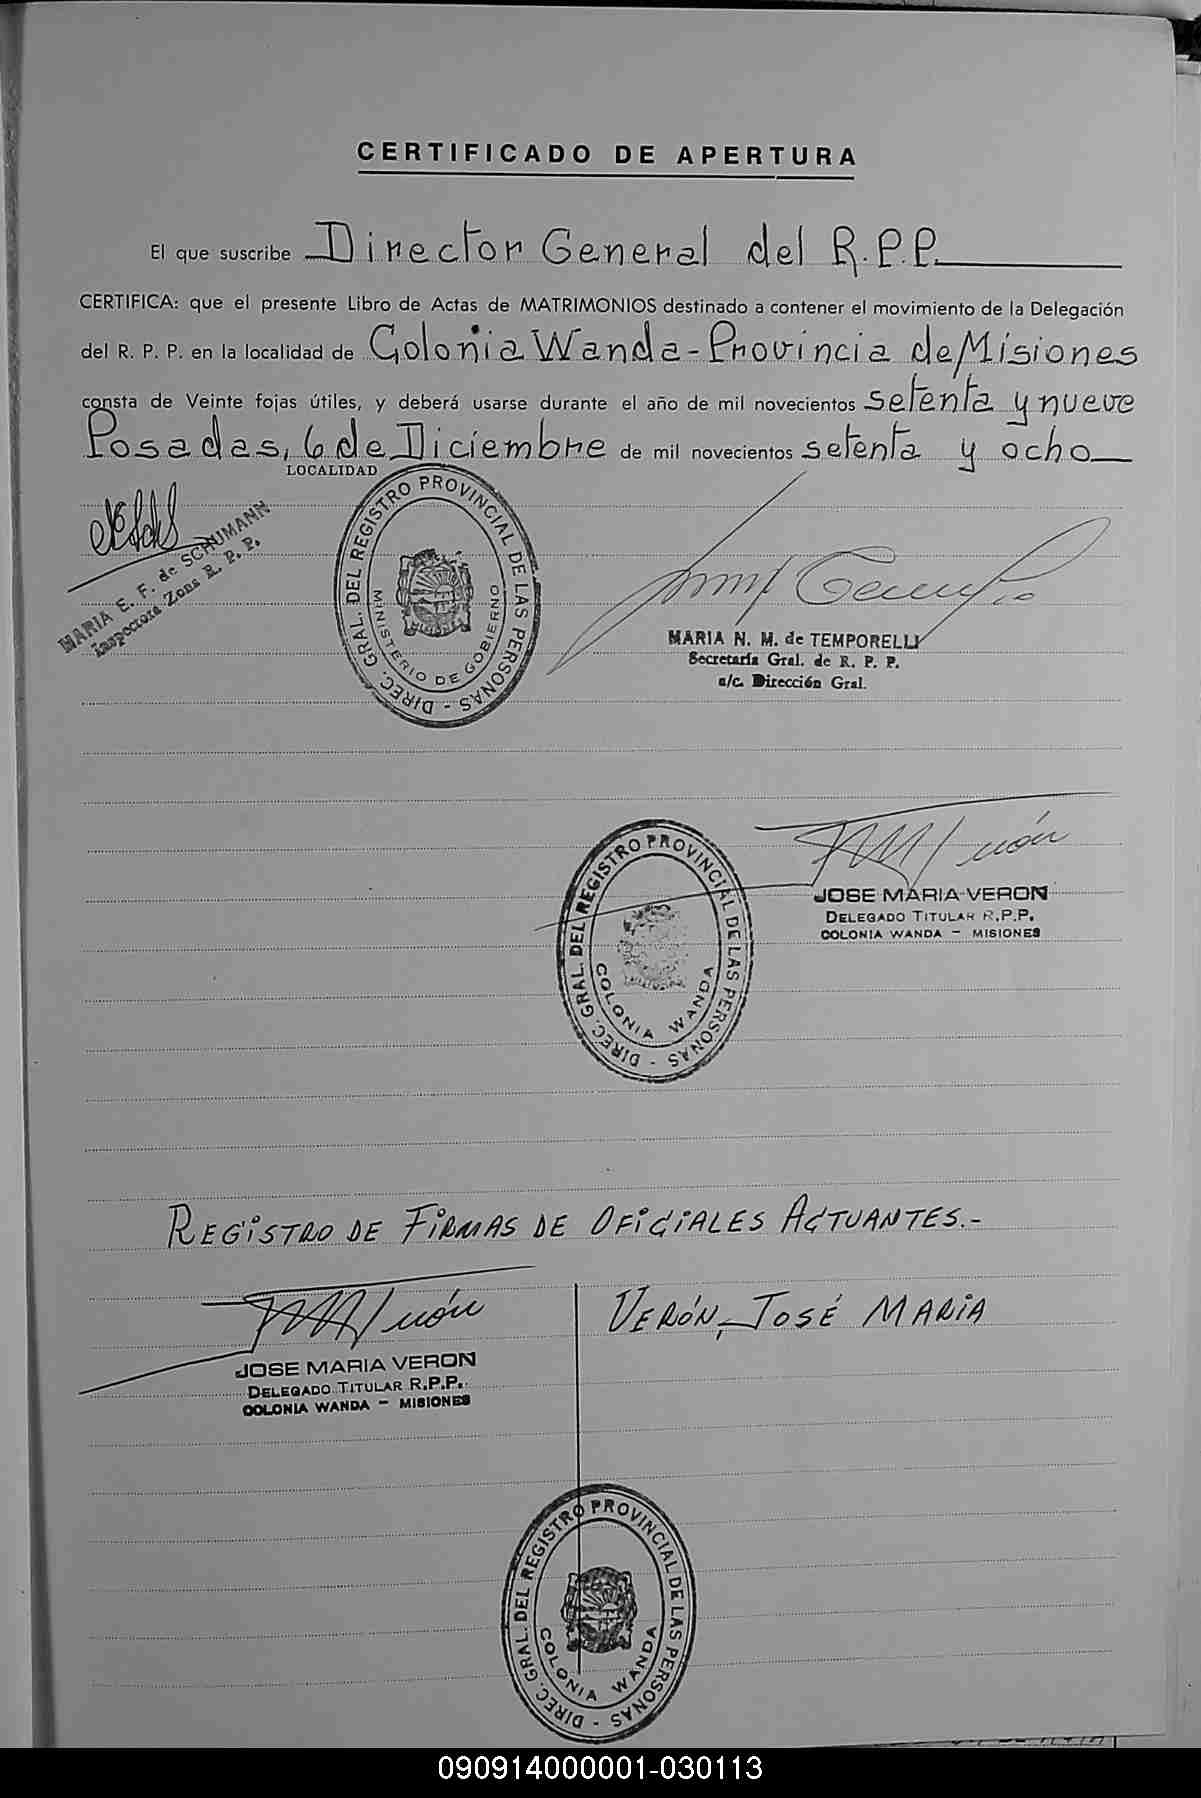 CERTIFICADO DE APERTURA
El que suscribe Director General del R.P.P.
CERTIFICA: que el presente Libro de Actas de MATRIMONIOS destinado a contener el movimiento de la Delegación
del R. P. P. en la localidad de Colonia Wanda - Provincia de Misiones
consta de Veinte fojas útiles, y deberá usarse durante el año de mil novecientos setenta y nueve
Posadas, 6 de Diciembre de mil novecientos setenta y ocho
LOCALIDAD
MARIA E. F. de SCHUMANN
Inspectora Zona R. P. P.
DIREC. GRAL. DEL REGISTRO PROVINCIAL DE LAS PERSONAS -
MINISTERIO DE GOBIERNO
MARIA N. M. de TEMPORELLI
Secretaria Gral. de R. P. P.
a/c. Dirección Gral.
JOSE MARIA VERON
DELEGADO TITULAR R.P.P.
COLONIA WANDA - MISIONES
DIREC. GRAL. DEL REGISTRO PROVINCIAL DE LAS PERSONAS -
COLONIA WANDA
REGISTRO DE FIRMAS DE OFICIALES ACTUANTES.-
VERÓN, JOSÉ MARIA
JOSE MARIA VERON
DELEGADO TITULAR R.P.P.
COLONIA WANDA - MISIONES
DIREC. GRAL. DEL REGISTRO PROVINCIAL DE LAS PERSONAS -
COLONIA WANDA
090914000001-030113